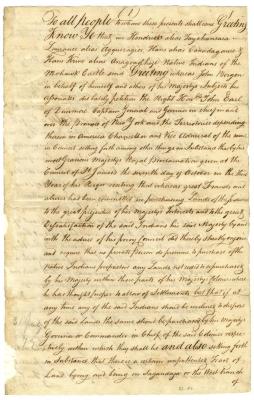 To all People to whom these presents shall come Greeting
Know Ye that we Hendrick alias
Lourance alias Hans alias and
Hans Krine alias Native Indians of the
Mohawk Castle send Greeting whereas John Bergen
in behalf of himself and others of his Majestys Subjects his
Associates did lately petition the Right Honble John Earl
of Dunmore Captain General and Governor in chief in and
over the Province of New York and the Territories depending
thereon in America Chancellor and Vice Admiral of the same
in Council setting forth among other things in Substance that by his
most Gracious Majestys Royal Proclamation given at the
Council of St James's the seventh day of October in the third
Year of his Reign reciting that whereas great Frauds and
abuses had been committed in purchasing Lands of the Indians
to the great prejudice of his Majestys Interests and to the great
Dissatisfaction of the said Indians his said Majesty by and
with the advice of his privy Council did thereby strictly enjoin
and require that no private Person do presume to purchase of the
Native Indians possession any Lands not ceded to or purchased
by his Majesty within those parts of his Majestys Colonies where
he has thought proper to allow of Settlements but that if at
any time any of the said Indians should be inclined to dispose
of the said Lands the same should be purchased by his Majestys
Governor or Commander in Chief of the said Colonies respec
tively within which they shall lie and also setting forth
in Substance that there is a certain unpatented Tract of
Land lying and being in on the West branch
of